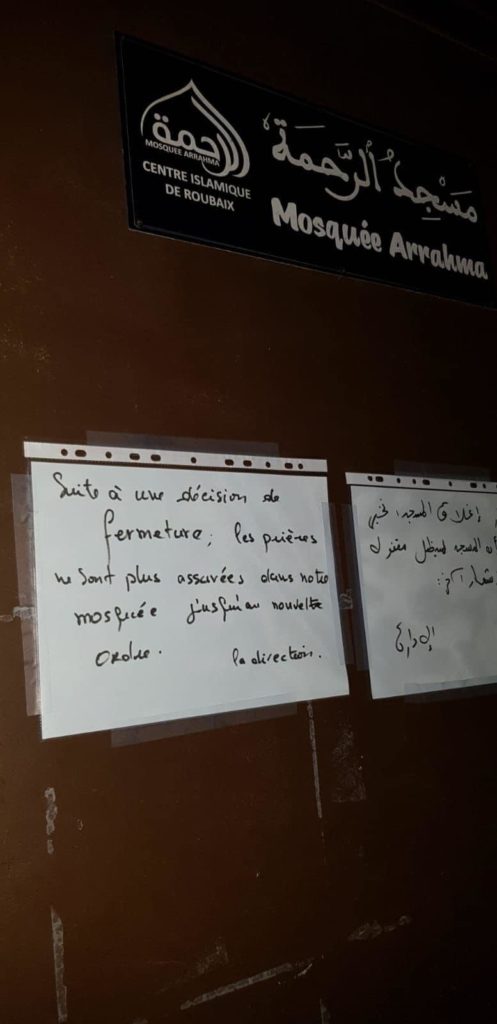 الرحمة
MOSQUEE ARRAHMA
CENTRE ISLAMIQUE
DE ROUBAIX
مَسْجِدُ الرَّحْمَة
Mosquée Arrahma
Suite à une décision de
fermeture; les prières
ne sont plus assurées dans notre
mosquée jusqu'au nouvelle
ordre. la direction.
إغلاق المسجد
المسجد سيظل
الإدارة